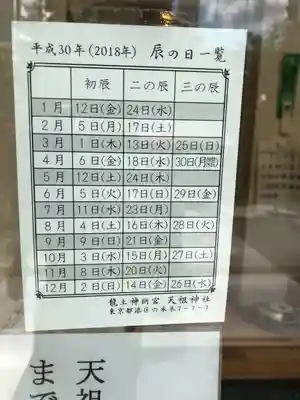 平成30年(2018年) 辰の日一覧
初辰 二の辰 三の辰
1月 12日(金) 24日(水)
2月 5日(月) 17日(土)
3月 1日(木) 13日(火) 25日(日)
4月 6日(金) 18日(水) 30日(月祝)
5月 12日(土) 24日(木)
6月 5日(火) 17日(日) 29日(金)
7月 11日(水) 23日(月)
8月 4日(土) 16日(木) 28日(火)
9月 9日(日) 21日(金)
10月 3日(水) 15日(月) 27日(土)
11月 8日(木) 20日(火)
12月 2日(日) 14日(金) 26日(水)
龍土神明宮 天祖神社
東京都港区六本木7-7-7
天祖
まで